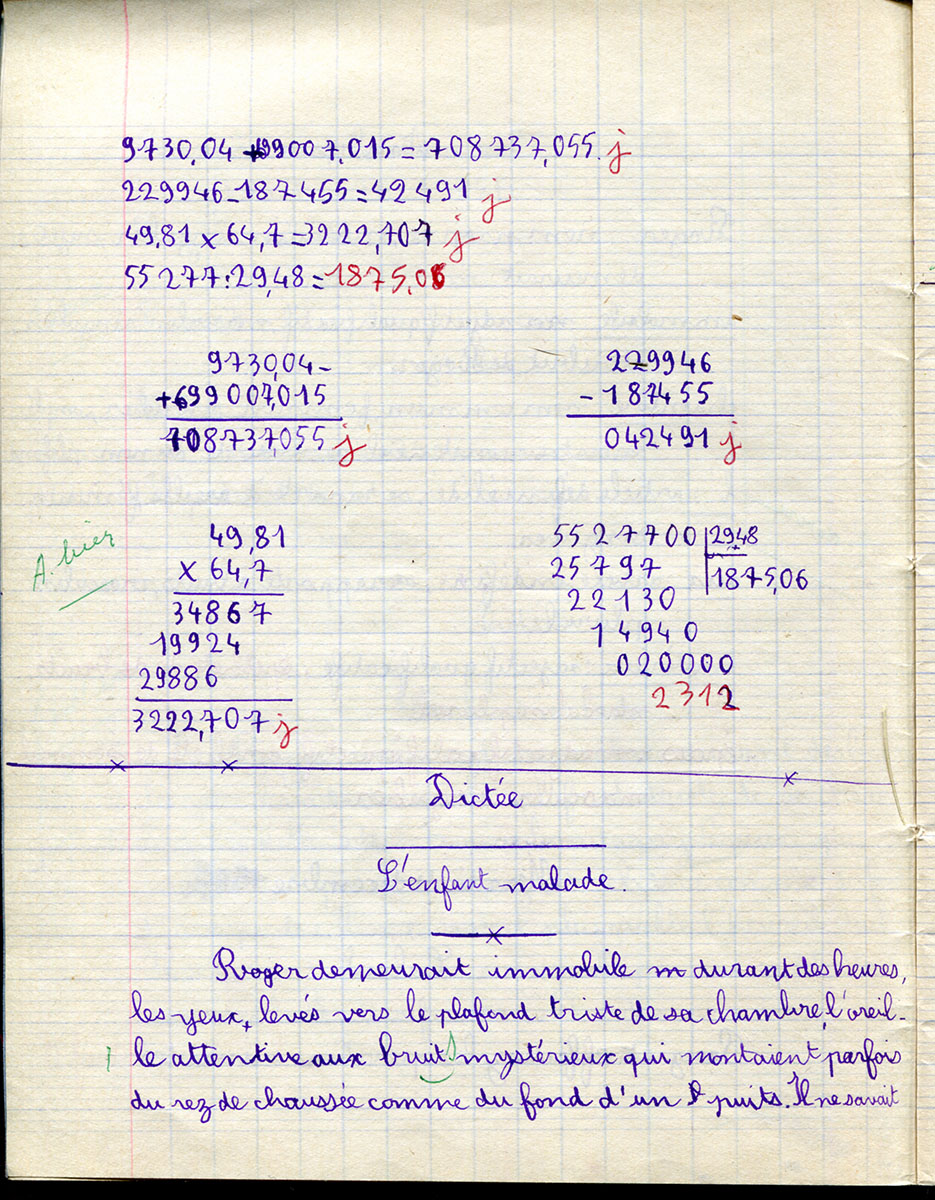 9730,04 +699007,015 = 708737,055. j
229946 - 187455 = 42491 j
49,81 x 64,7 = 3222,707 j
55277 : 29,48 = 1875,06
9730,04 -
+699007,015
708737,055 j
229946
- 187455
042491 j
A. bien
49,81
x 64,7
34867
19924
29886
3222,707 j
5527700 2948
25797 1875,06
22130
14940
020000
2312
Dictée
L'enfant malade.
Roger demeurait immobile m durant des heures,
les yeux, levés vers le plafond triste de sa chambre, l'oreil-
le attentive aux bruits mystérieux qui montaient parfois
du rez de chaussée comme du fond d'un P puits. Il ne savait